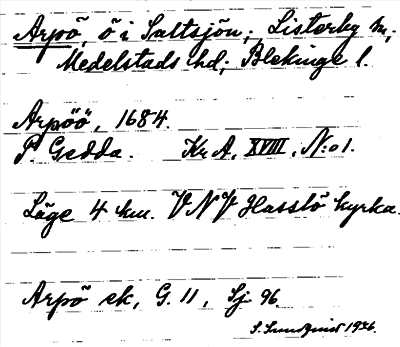 Arpö, ö i Saltsjön; Listerby sn;
Medelstads hd; Blekinge l.
Arpöö, 1684.
P. Gedda. Kr A, XVIII, N:o 1.
Läge 4 km. VNV Hasslö kyrka.
Arpö ek, G. 11, Sj. 96.
S. Sundquist 1926.